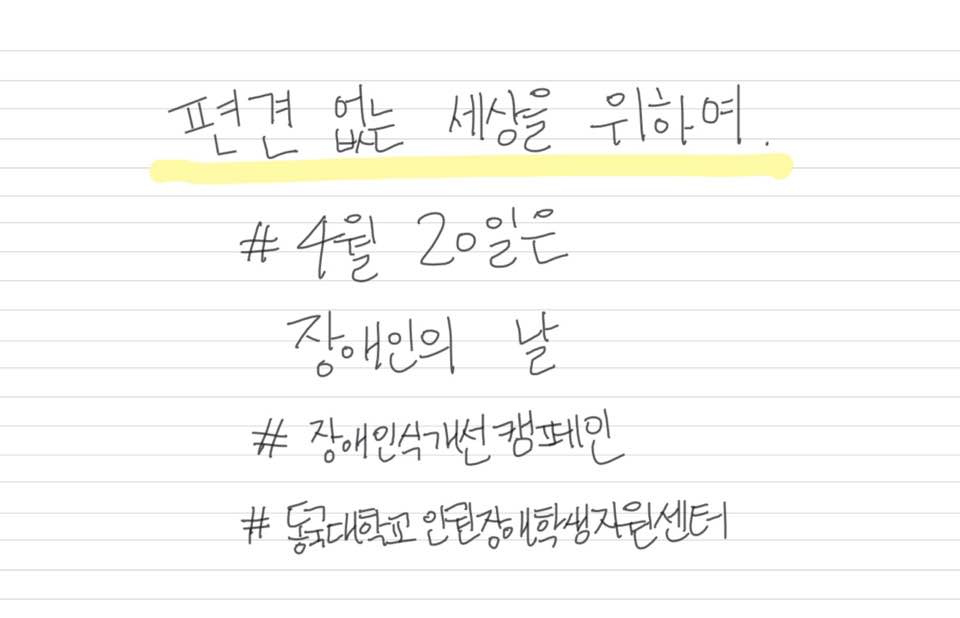 편견 없는 세상을 위하여.
# 4월 20일은
장애인의 날
# 장애인식개선캠페인
# 동국대학교인권장애학생지원센터